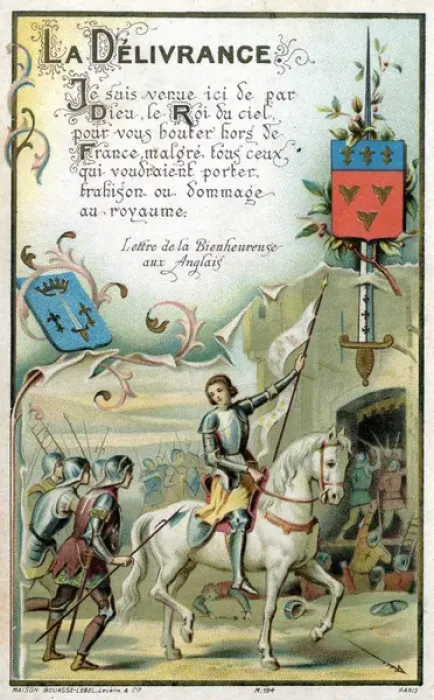 La Délivrance.
Je suis venue ici de par
Dieu, le Roi du ciel,
pour vous bouter hors de
France, malgré tous ceux
qui voudraient porter,
trahison ou dommage
au royaume.
Lettre de la Bienheureuse
aux Anglais
MAISON BOUASSE-LEBEL, Lecène & Cie
M. 194
PARIS